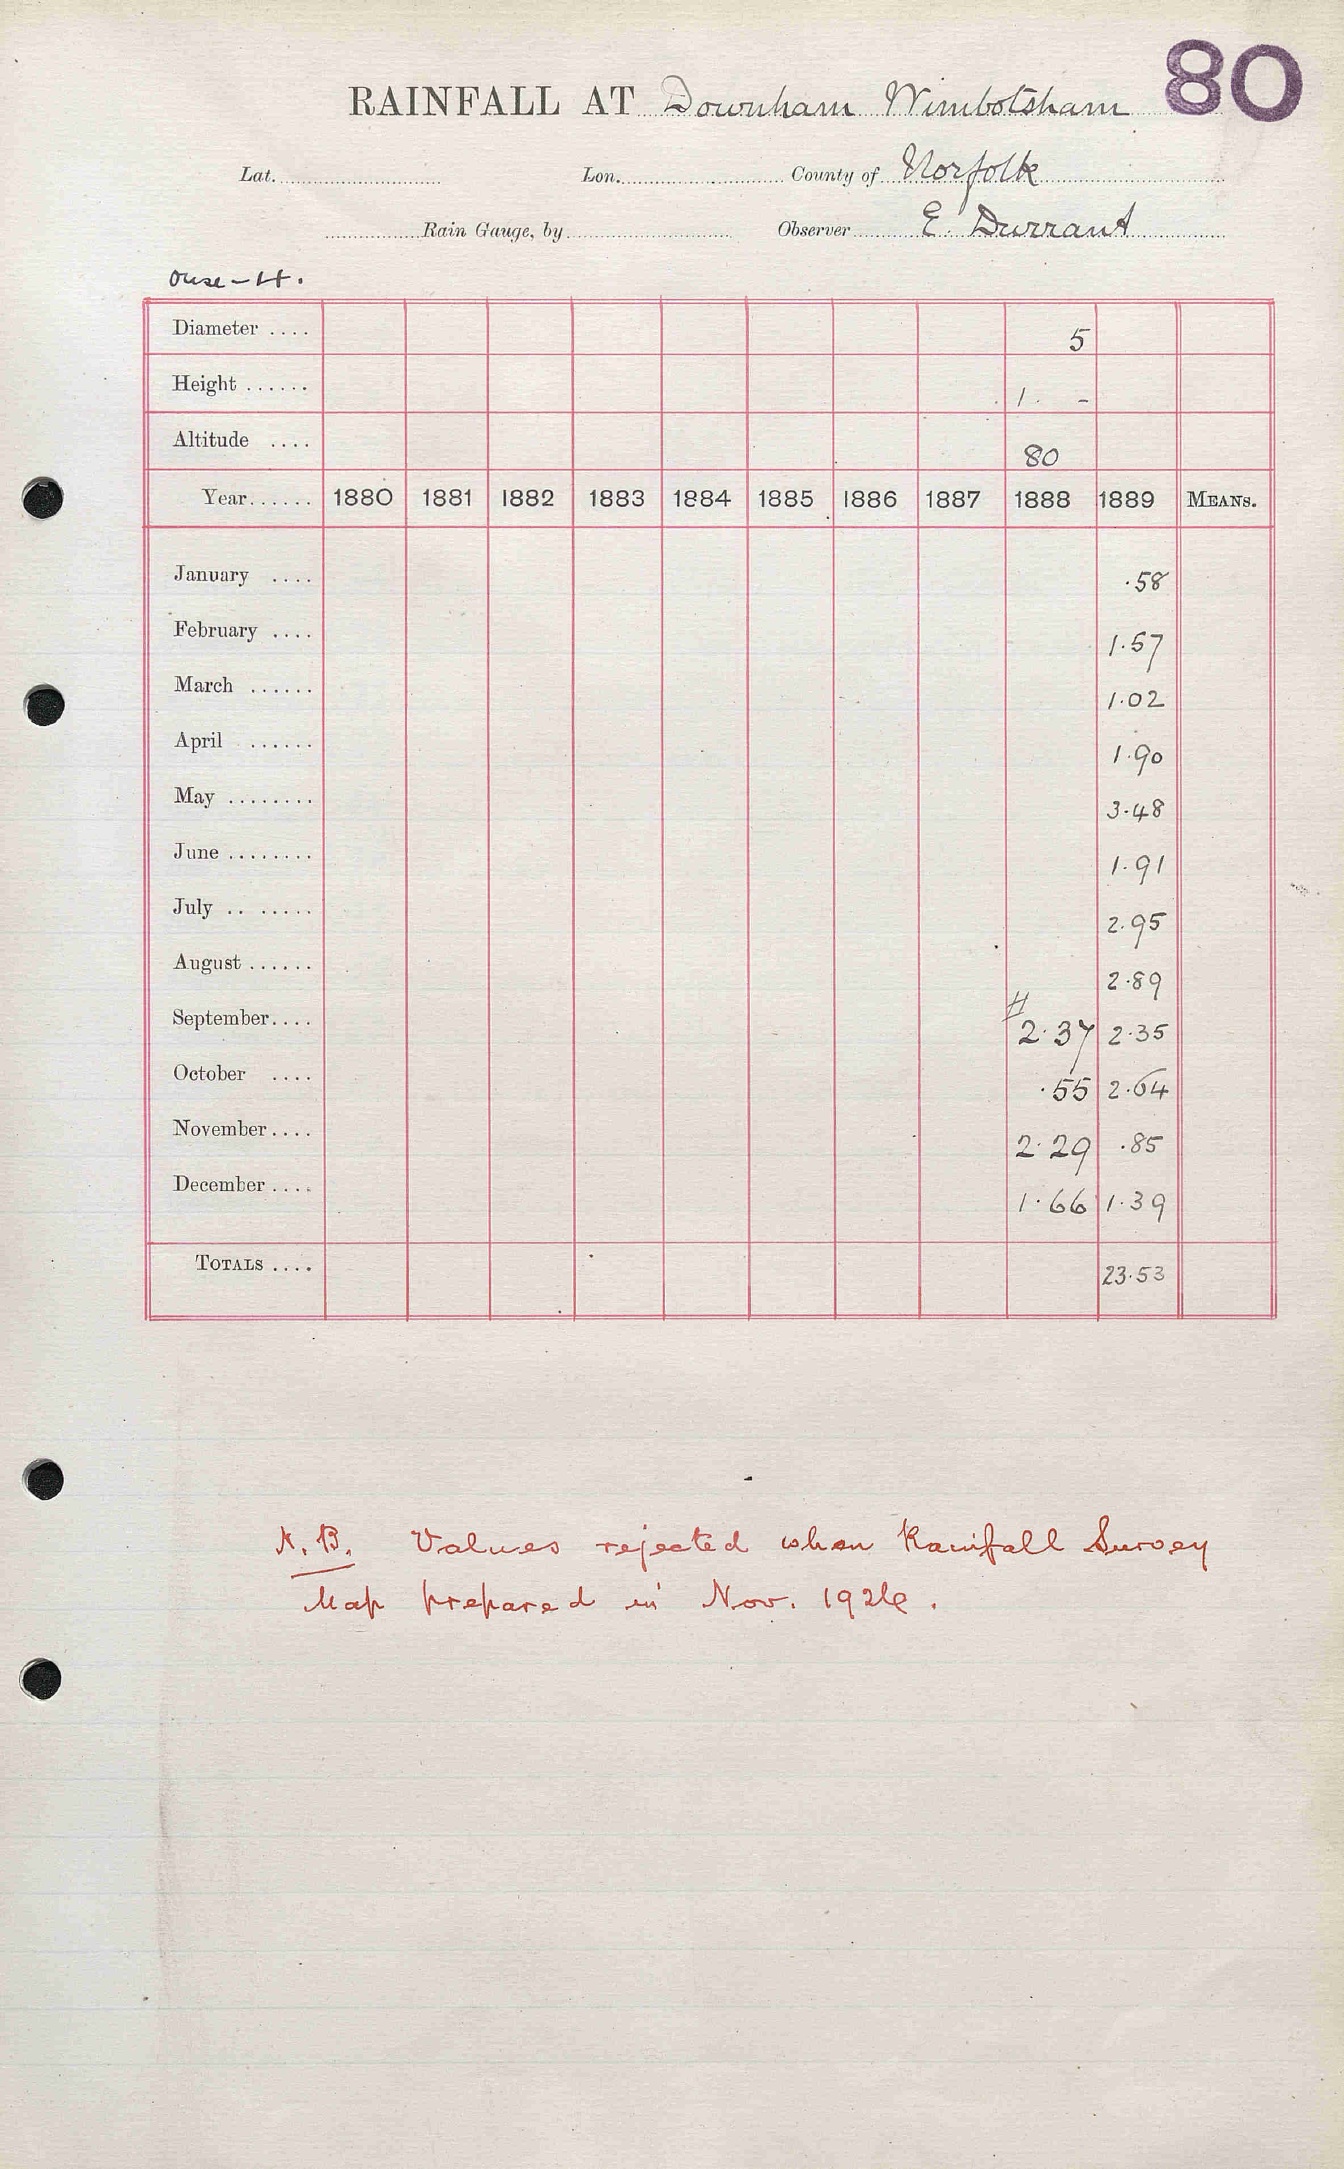 80
RAINFALL AT Downham Wimbotsham
Lat. Lon. County of Norfolk
Rain Gauge, by Observer E. Durrant
Ouse - H.
Diameter .... 5
Height ...... 1. -
Altitude .... 80
Year...... 1880 1881 1882 1883 1884 1885 1886 1887 1888 1889 MEANS.
January .... .58
February .... 1.57
March ...... 1.02
April ...... 1.90
May ........ 3.48
June ........ 1.91
July .. ...... 2.95
August ...... 2.89
September.... 2.37 2.35
October .... .55 2.64
November.... 2.29 .85
December.... 1.66 1.39
TOTALS .... 23.53
N.B. Values rejected when Rainfall Survey
Map prepared in Nov. 1926.